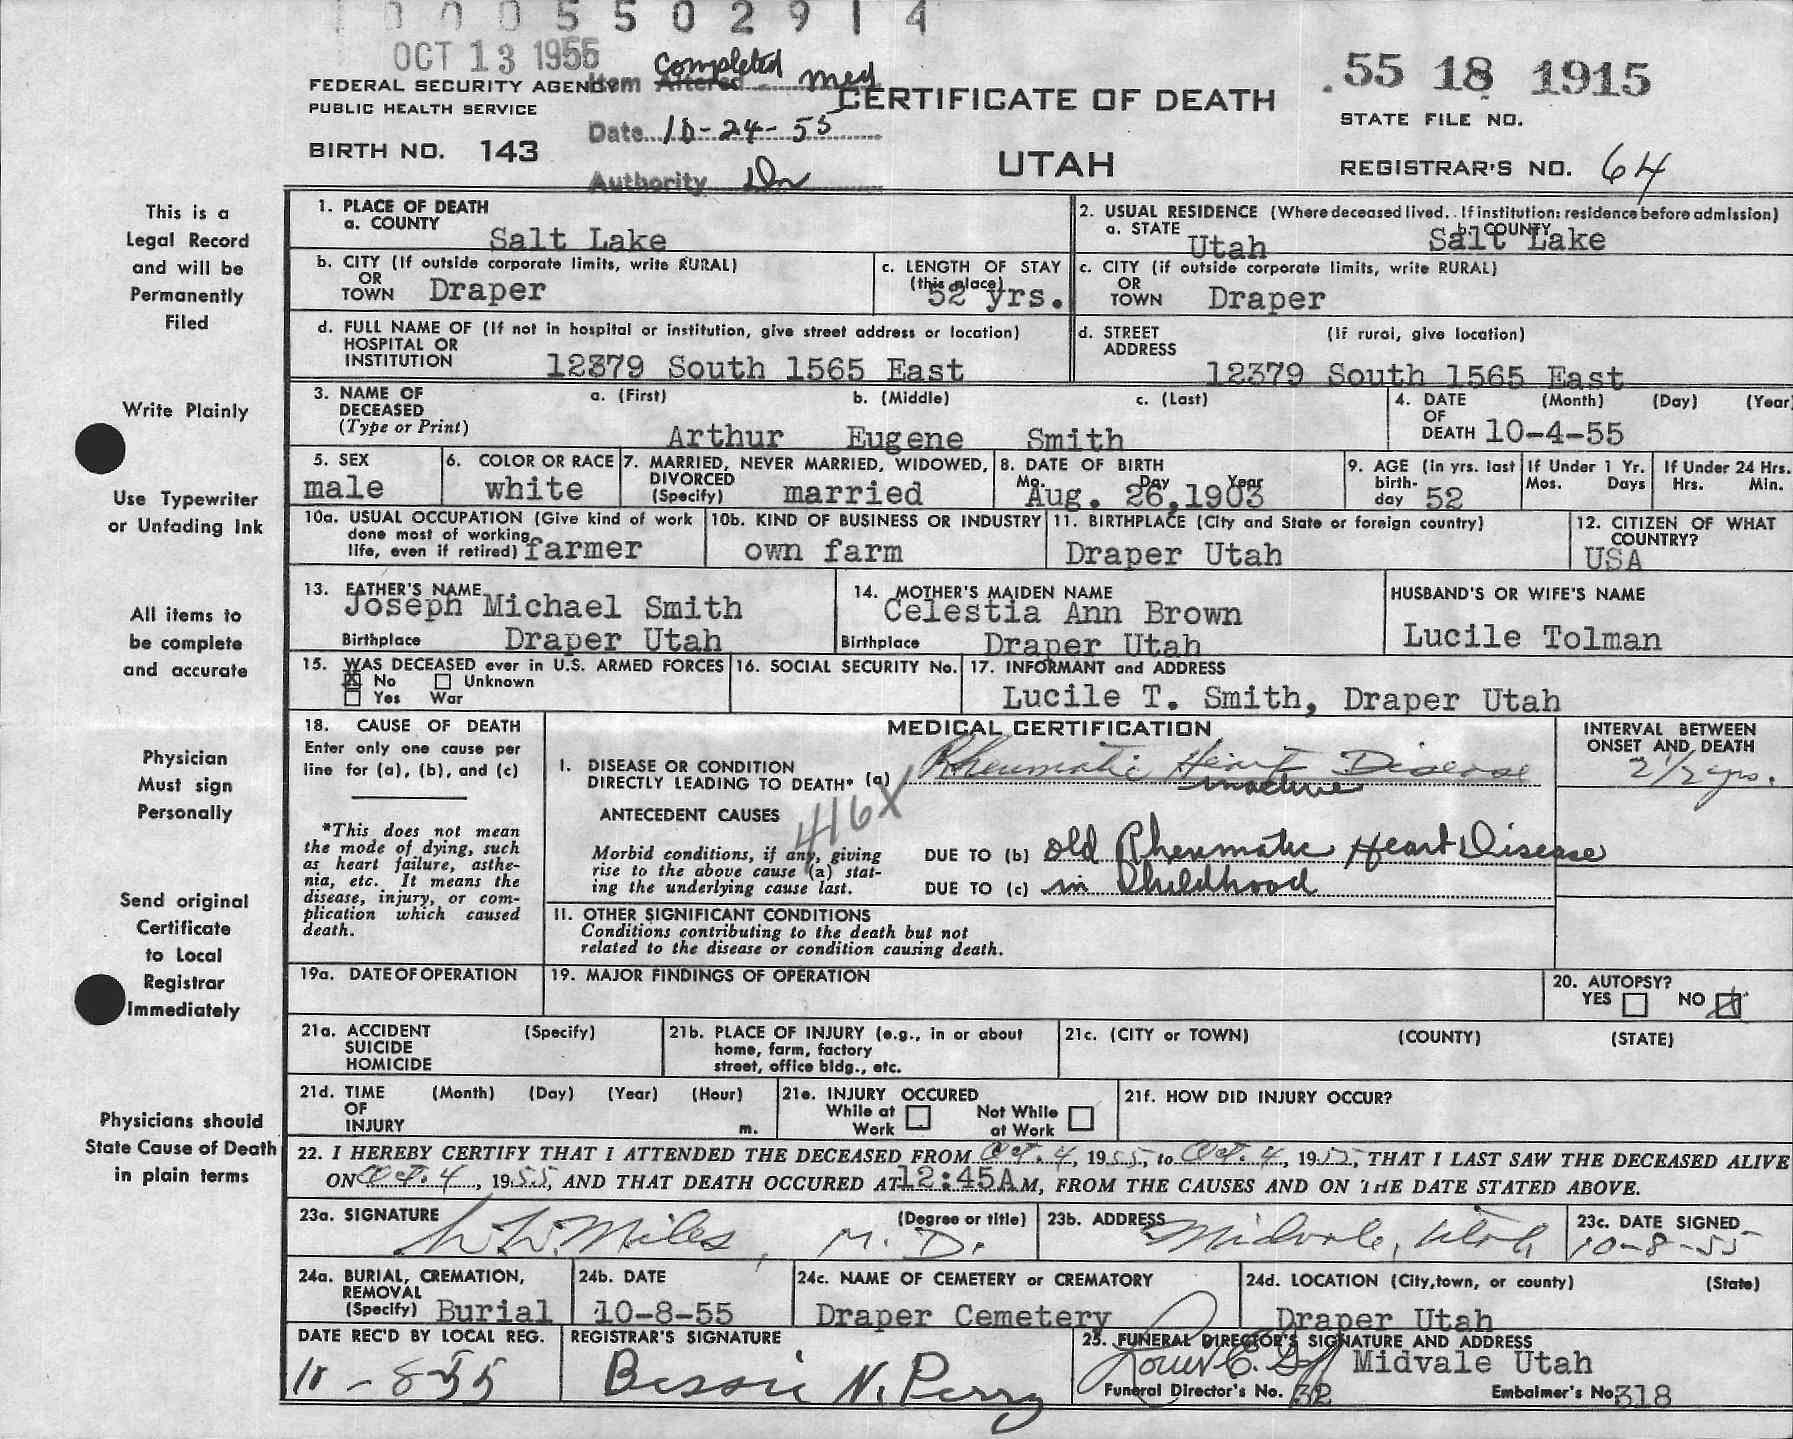 0 0 0 5 5 0 2 9 1 4
OCT 13 1955
FEDERAL SECURITY AGENCY
PUBLIC HEALTH SERVICE
BIRTH NO. 143
Item Altered Completed med
Date 10-24-55
Authority
CERTIFICATE OF DEATH
UTAH
55 18 1915
STATE FILE NO.
REGISTRAR'S NO. 64
This is a
Legal Record
and will be
Permanently
Filed
Write Plainly
Use Typewriter
or Unfading Ink
All items to
be complete
and accurate
Physician
Must sign
Personally
Send original
Certificate
to Local
Registrar
Immediately
Physicians should
State Cause of Death
in plain terms
1. PLACE OF DEATH
a. COUNTY Salt Lake
2. USUAL RESIDENCE (Where deceased lived. . If institution: residence before admission)
a. STATE Utah b. COUNTY Salt Lake
b. CITY (If outside corporate limits, write RURAL)
OR
TOWN Draper
c. LENGTH OF STAY
(this place)
52 yrs.
c. CITY (if outside corporate limits, write RURAL)
OR
TOWN Draper
d. FULL NAME OF (If not in hospital or institution, give street address or location)
HOSPITAL OR
INSTITUTION 12379 South 1565 East
d. STREET (If rural, give location)
ADDRESS
12379 South 1565 East
3. NAME OF a. (First) b. (Middle) c. (Last)
DECEASED
(Type or Print) Arthur Eugene Smith
4. DATE (Month) (Day) (Year
OF
DEATH 10-4-55
5. SEX
male
6. COLOR OR RACE
white
7. MARRIED, NEVER MARRIED, WIDOWED,
DIVORCED
(Specify) married
8. DATE OF BIRTH
Mo. Day Year
Aug. 26,1903
9. AGE (in yrs. last
birth-
day 52
If Under 1 Yr.
Mos. Days
If Under 24 Hrs.
Hrs. Min.
10a. USUAL OCCUPATION (Give kind of work
done most of working
life, even if retired) farmer
10b. KIND OF BUSINESS OR INDUSTRY
own farm
11. BIRTHPLACE (City and State or foreign country)
Draper Utah
12. CITIZEN OF WHAT
COUNTRY?
USA
13. FATHER'S NAME
Joseph Michael Smith
Birthplace Draper Utah
14. MOTHER'S MAIDEN NAME
Celestia Ann Brown
Birthplace Draper Utah
HUSBAND'S OR WIFE'S NAME
Lucile Tolman
15. WAS DECEASED ever in U.S. ARMED FORCES
X No Unknown
Yes War
16. SOCIAL SECURITY No.
17. INFORMANT and ADDRESS
Lucile T. Smith, Draper Utah
18. CAUSE OF DEATH
Enter only one cause per
line for (a), (b), and (c)
*This does not mean
the mode of dying, such
as heart failure, asthe-
nia, etc. It means the
disease, injury, or com-
plication which caused
death.
MEDICAL CERTIFICATION
INTERVAL BETWEEN
ONSET AND DEATH
2 1/2 yrs.
I. DISEASE OR CONDITION
DIRECTLY LEADING TO DEATH* (a) Rheumatic Heart Disease
inactive
416X
ANTECEDENT CAUSES
Morbid conditions, if any, giving
rise to the above cause (a) stat-
ing the underlying cause last.
DUE TO (b) old Rheumatic Heart Disease
DUE TO (c) in Childhood
II. OTHER SIGNIFICANT CONDITIONS
Conditions contributing to the death but not
related to the disease or condition causing death.
19a. DATE OF OPERATION
19. MAJOR FINDINGS OF OPERATION
20. AUTOPSY?
YES NO X
21a. ACCIDENT (Specify)
SUICIDE
HOMICIDE
21b. PLACE OF INJURY (e.g., in or about
home, farm, factory
street, office bldg., etc.
21c. (CITY or TOWN) (COUNTY) (STATE)
21d. TIME (Month) (Day) (Year) (Hour)
OF
INJURY m.
21e. INJURY OCCURED
While at Work Not While at Work
21f. HOW DID INJURY OCCUR?
22. I HEREBY CERTIFY THAT I ATTENDED THE DECEASED FROM Oct. 4, 1955, to Oct. 4, 1955, THAT I LAST SAW THE DECEASED ALIVE
ON Oct. 4, 1955, AND THAT DEATH OCCURED AT 12:45A M, FROM THE CAUSES AND ON THE DATE STATED ABOVE.
23a. SIGNATURE (Degree or title)
Miles, M. D.
23b. ADDRESS
Midvale, Utah
23c. DATE SIGNED
10-8-55
24a. BURIAL, CREMATION,
REMOVAL
(Specify) Burial
24b. DATE
10-8-55
24c. NAME OF CEMETERY or CREMATORY
Draper Cemetery
24d. LOCATION (City, town, or county) (State)
Draper Utah
DATE REC'D BY LOCAL REG.
10-8-55
REGISTRAR'S SIGNATURE
Bessie N. Perry
25. FUNERAL DIRECTOR'S SIGNATURE AND ADDRESS
Midvale Utah
Funeral Director's No. 32 Embalmer's No 318